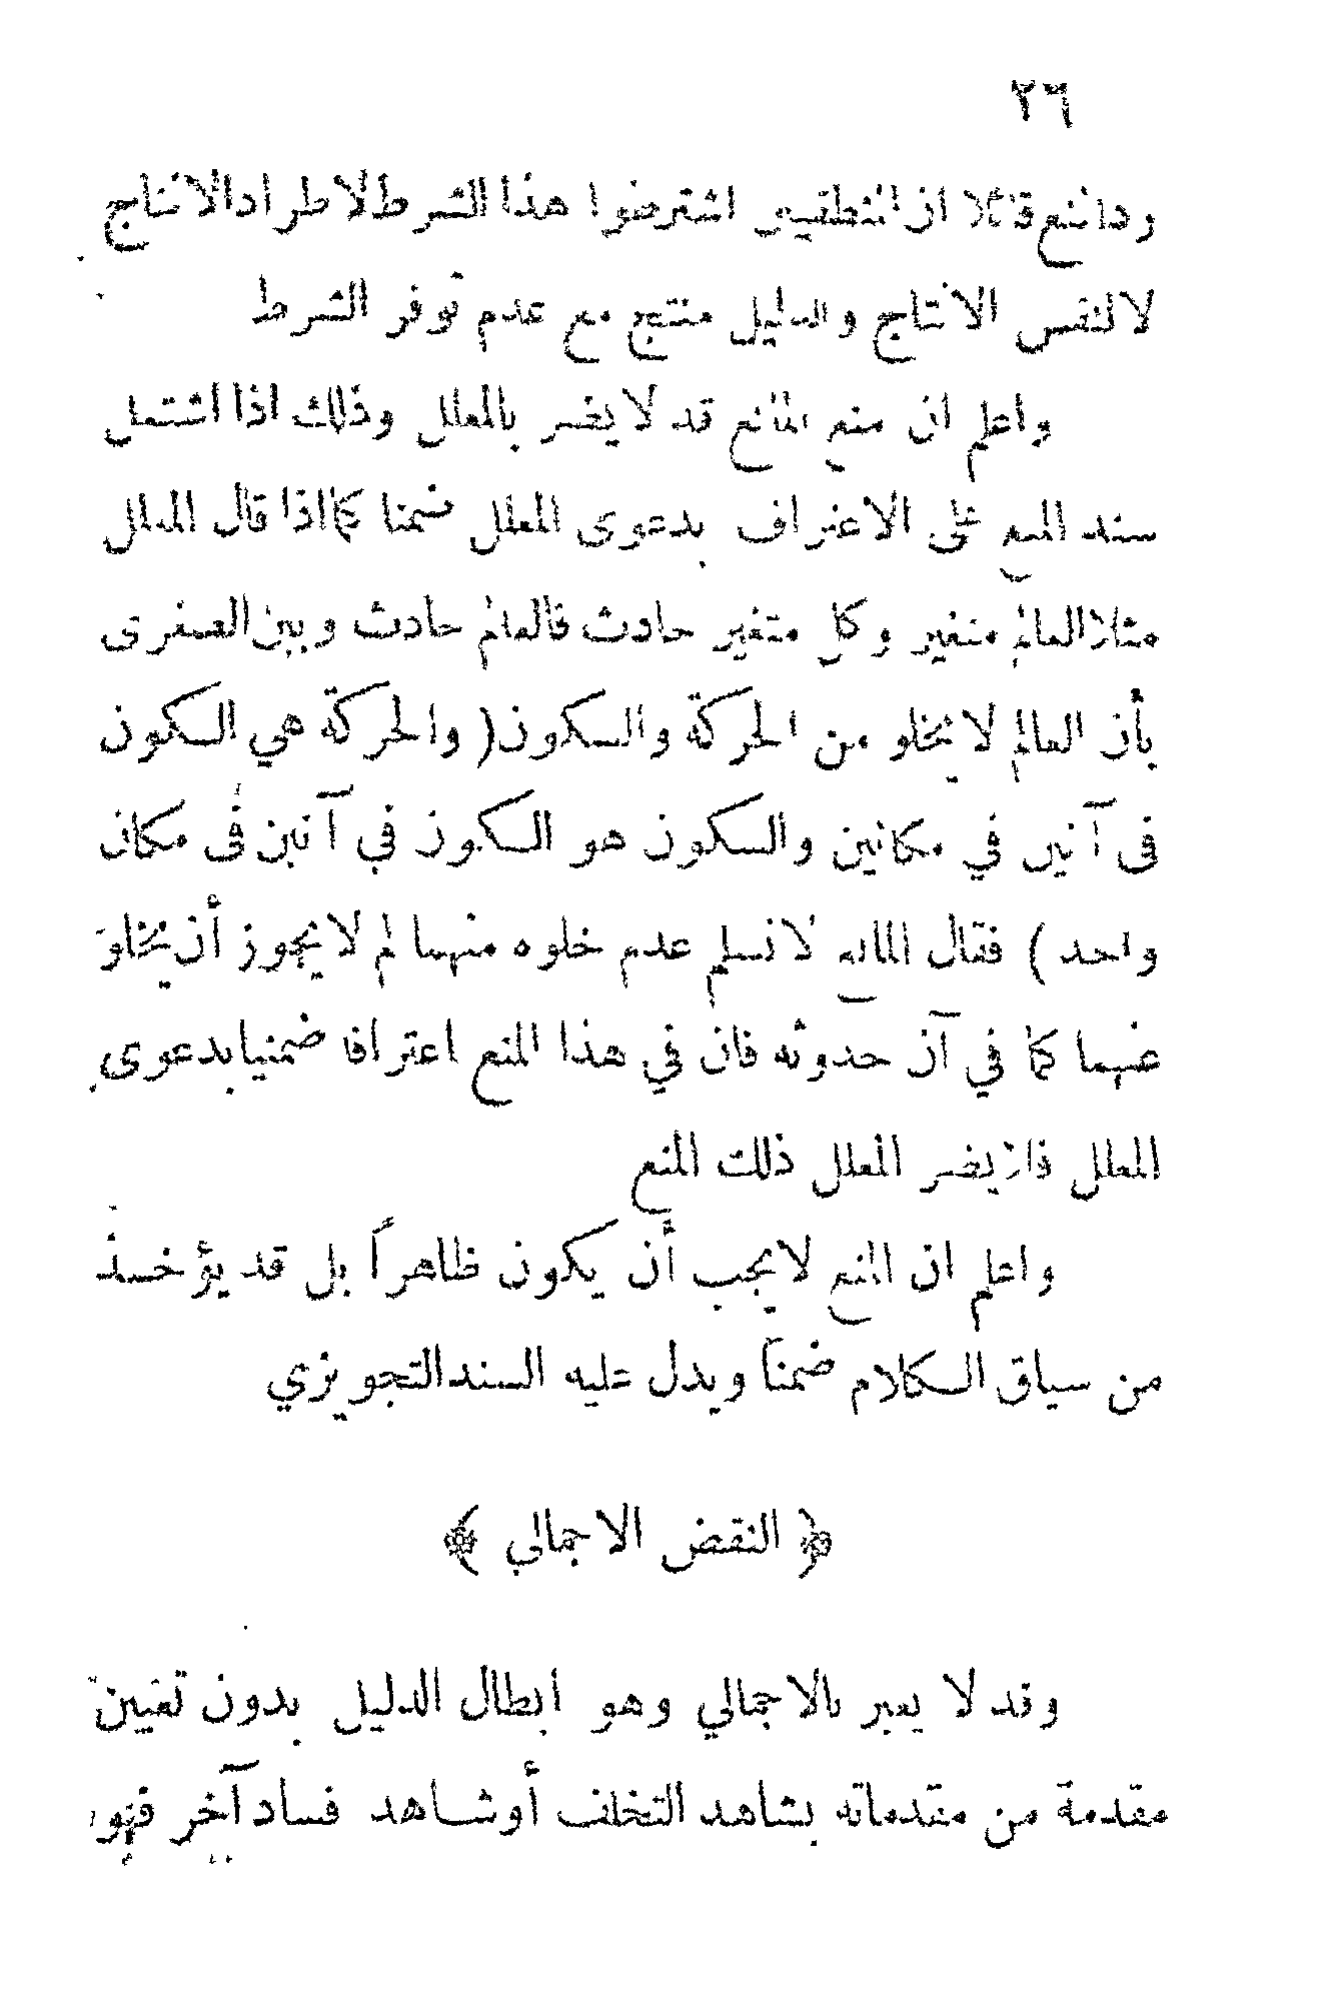 ٢٦
ردا نع قائلا ان المنطقيين اشترضوا هذا الشرط لاطراد الانتاج
لا لنفس الانتاج والدليل منتج مع عدم توفر الشرط
واعلم ان منع المانع قد لا يضر بالمعلل وذلك اذا اشتمل
سند المنع على الاعتراف بدعوى المعلل ضمنا كما اذا قال المعلل
مثلا العالم متغير وكل متغير حادث فالعالم حادث وبين الصغرى
بأن العالم لا يخلو من الحركة والسكون ( والحركة هي السكون
في آنين في مكانين والسكون هو السكون في آنين في مكان
واحد ) فقال المانع لا نسلم عدم خلوه منهما لم لا يجوز أن يخلو
عنهما كما في آن حدوثه فان في هذا المنع اعترافا ضمنيا بدعوى
المعلل فلا يضر المعلل ذلك المنع
واعلم ان المنع لا يجب أن يكون ظاهراً بل قد يؤخذ
من سياق الكلام ضمناً ويدل عليه السند التجويزي
﴿ النقض الاجمالي ﴾
وقد لا يعبر بالاجمالي وهو ابطال الدليل بدون تعيين
مقدمة من مقدماته بشاهد التخلف أو شاهد فساد آخر فهو